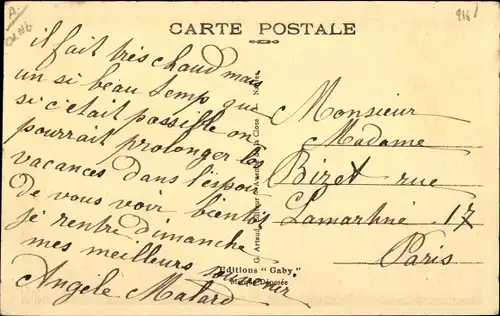 CARTE POSTALE
il fait très chaud mais
un si beau temp que
si c'était possible on
pourrait prolonger les
vacances dans l'espoir
de vous voir bientôt
je rentre dimanche
mes meilleurs souvenir
Angèle Matard
Editions "Gaby"
Marque Déposée
G. Artaud, Editeur
Monsieur
Madame
Bizet rue
Lamartine 17
Paris